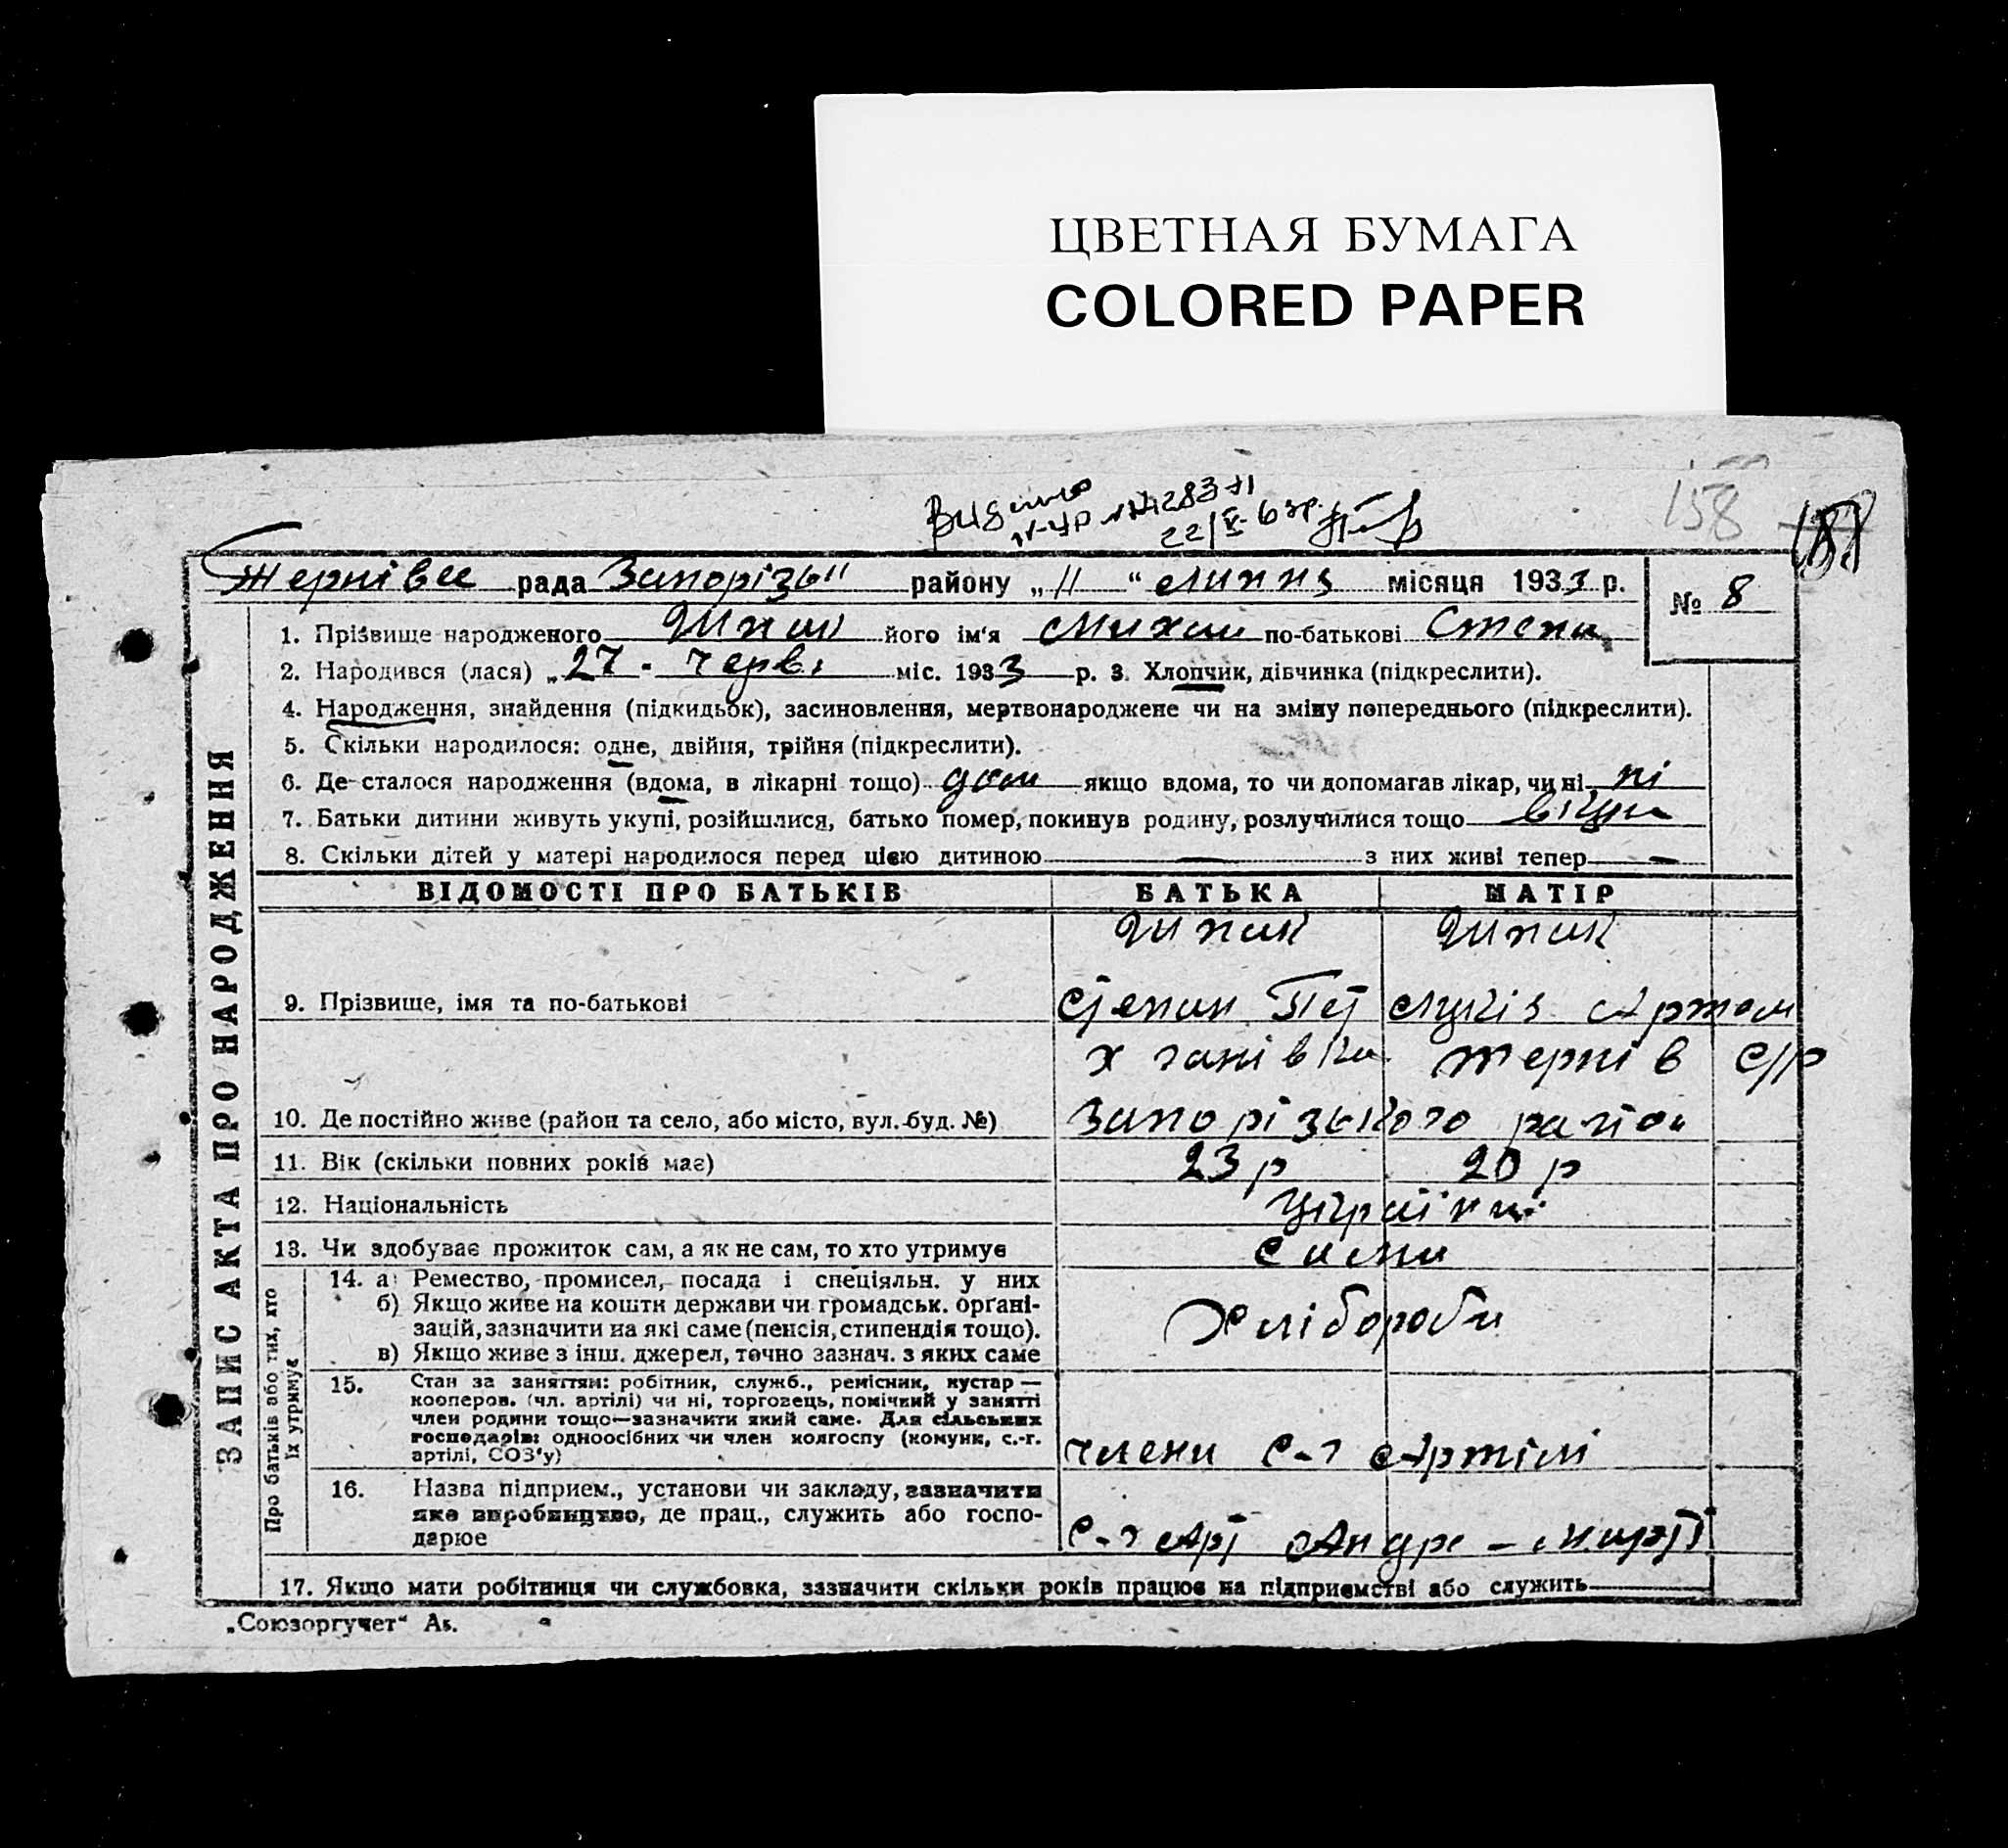 ЦВЕТНАЯ БУМАГА
COLORED PAPER
158
22/V-63р.
Тернівсь рада Запорізьк району „11“ липня місяця 1933 р.
№ 8
1. Прізвище народженого Шпак його ім'я Михай по-батькові Степа
2. Народився (лася) „27 - черв. міс. 1933 р. 3. Хлопчик, дівчинка (підкреслити).
4. Народження, знайдення (підкидьок), засиновлення, мертвонароджене чи на зміну попереднього (підкреслити).
5. Скільки народилося: одне, двійня, трійня (підкреслити).
6. Де сталося народження (вдома, в лікарні тощо) дом якщо вдома, то чи допомагав лікар, чи ні ні
7. Батьки дитини живуть укупі, розійшлися, батько помер, покинув родину, розлучилися тощо вкупі
8. Скільки дітей у матері народилося перед цією дитиною — з них живі тепер —
ЗАПИС АКТА ПРО НАРОДЖЕННЯ
ВІДОМОСТІ ПРО БАТЬКІВ БАТЬКА МАТІР
Шпак Шпак
9. Прізвище, імя та по-батькові Степан Пет Артом
Терпів с/р
10. Де постійно живе (район та село, або місто, вул. буд. №) Запорізького район
11. Вік (скільки повних років має) 23 р 20 р
12. Національність Україн
13. Чи здобуває прожиток сам, а як не сам, то хто утримує сами
Про батьків або тих, хто їх утримує
14. а) Ремество, промисел, посада і спеціяльн. у них
б) Якщо живе на кошти держави чи громадськ. орґані-
зацій, зазначити на які саме (пенсія, стипендія тощо). Хлібороби
в) Якщо живе з інш. джерел, точно зазнач. з яких саме
15. Стан за заняттям: робітник, служб., ремісник, кустар —
кооперов. (чл. артілі) чи ні, торговець, помічний у занятті
член родини тощо—зазначити який саме. Для сільських
господарів: одноосібних чи член колгоспу (комуни, с.-г.
артілі, СОЗ'у) члени с-г Артілі
16. Назва підприєм., установи чи закладу, зазначити
яке виробництво, де прац., служить або госпо-
дарює с-г Арт Андре - Марті
17. Якщо мати робітниця чи службовка, зазначити скільки років працює на підприємстві або служить —
„Союзоргучет“ Ак.